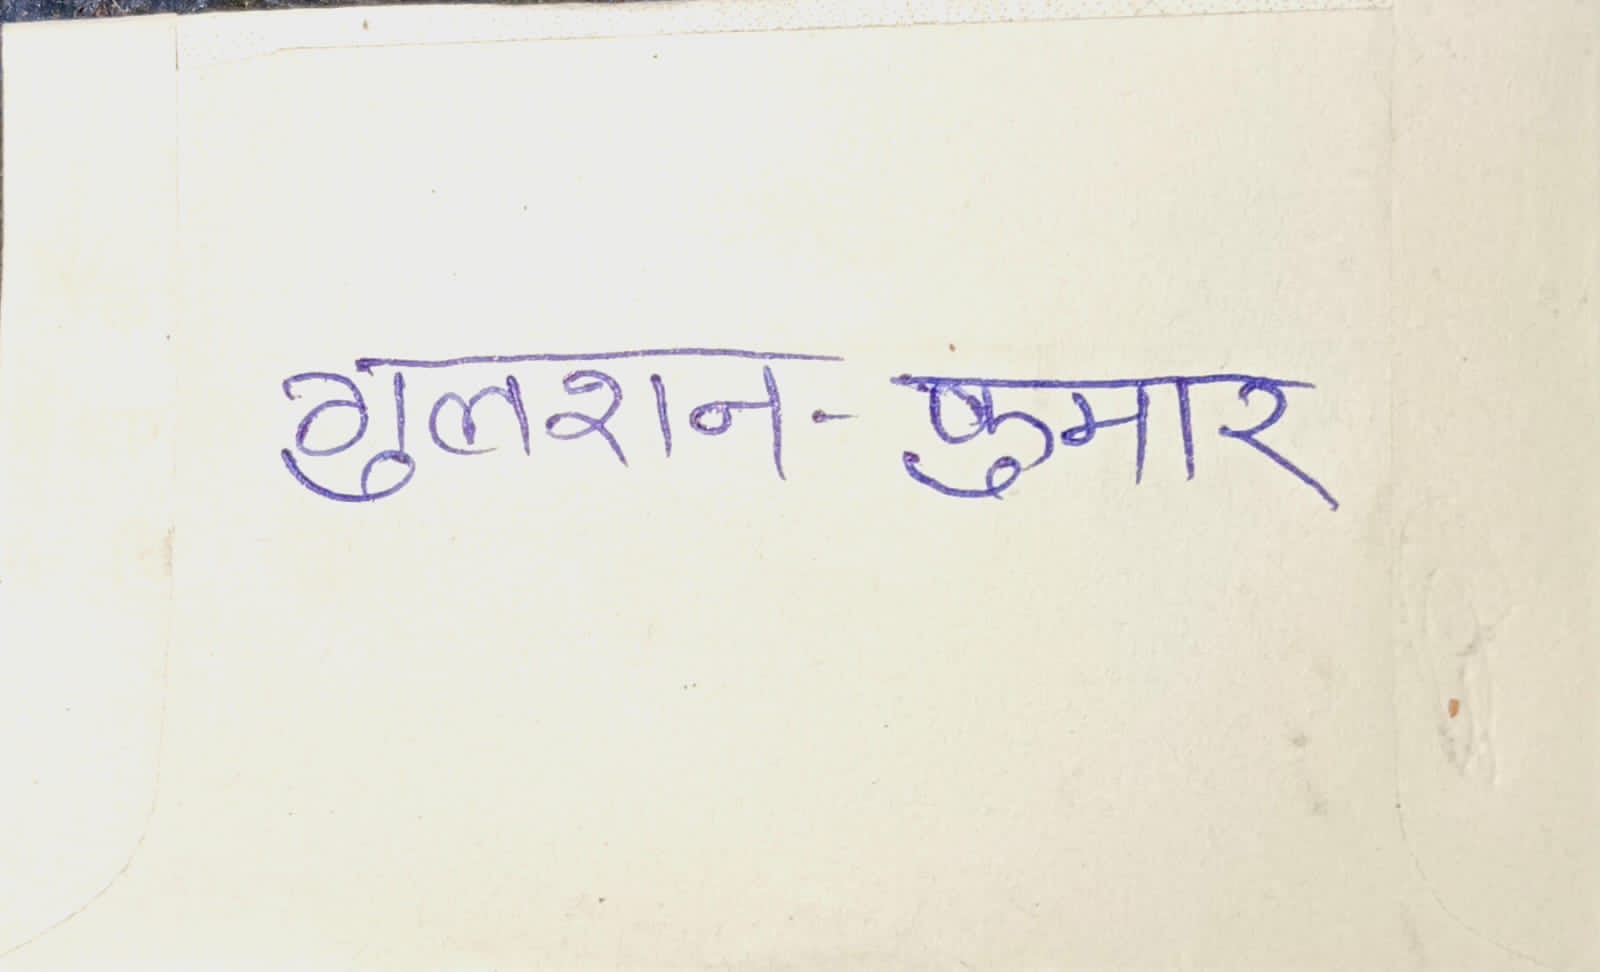 गुलशन- कुमार